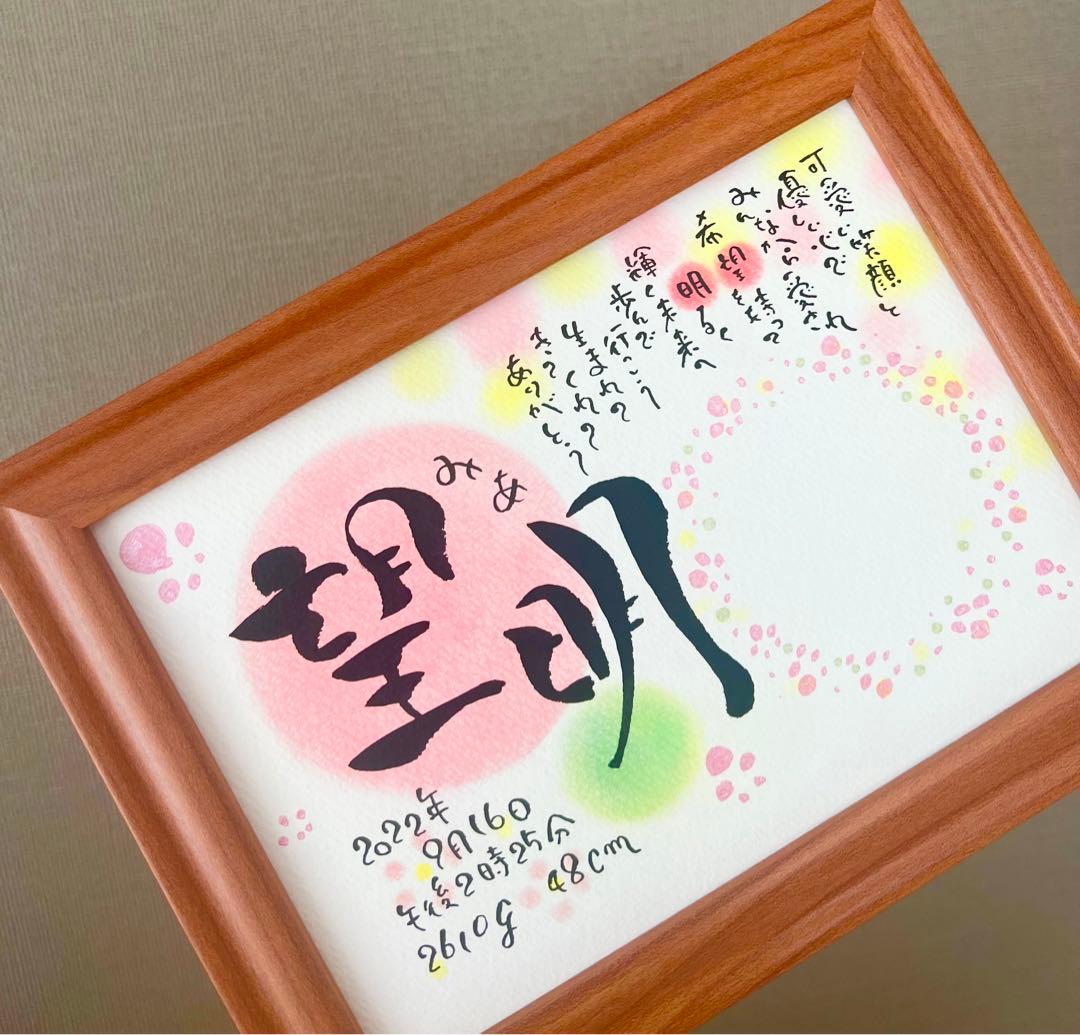 可愛い笑顔と
優しい心で
みんなから愛され
希望を持って
明るく
輝く未来へ
歩んで
行こう
生まれて
きてくれて
ありがとう
みあ
望明
2022年
9月16日
午後2時25分
2610g 48cm